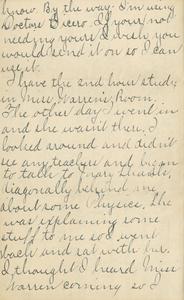 know. By the way I'm using
Doctors Cicero. If your not
needing yours I wish you
would send it on so I can
use it.
I have the 2nd hour study
in Miss Warren's Room.
The other day I went in
and she wasn't there. I
looked around and didn't
see any teachers and began
to talk to
diagonally behind me
about some Physics. She
was explaining some
stuff to me so I went
back and sat with her.
I thought I heard Miss
Warren coming so I